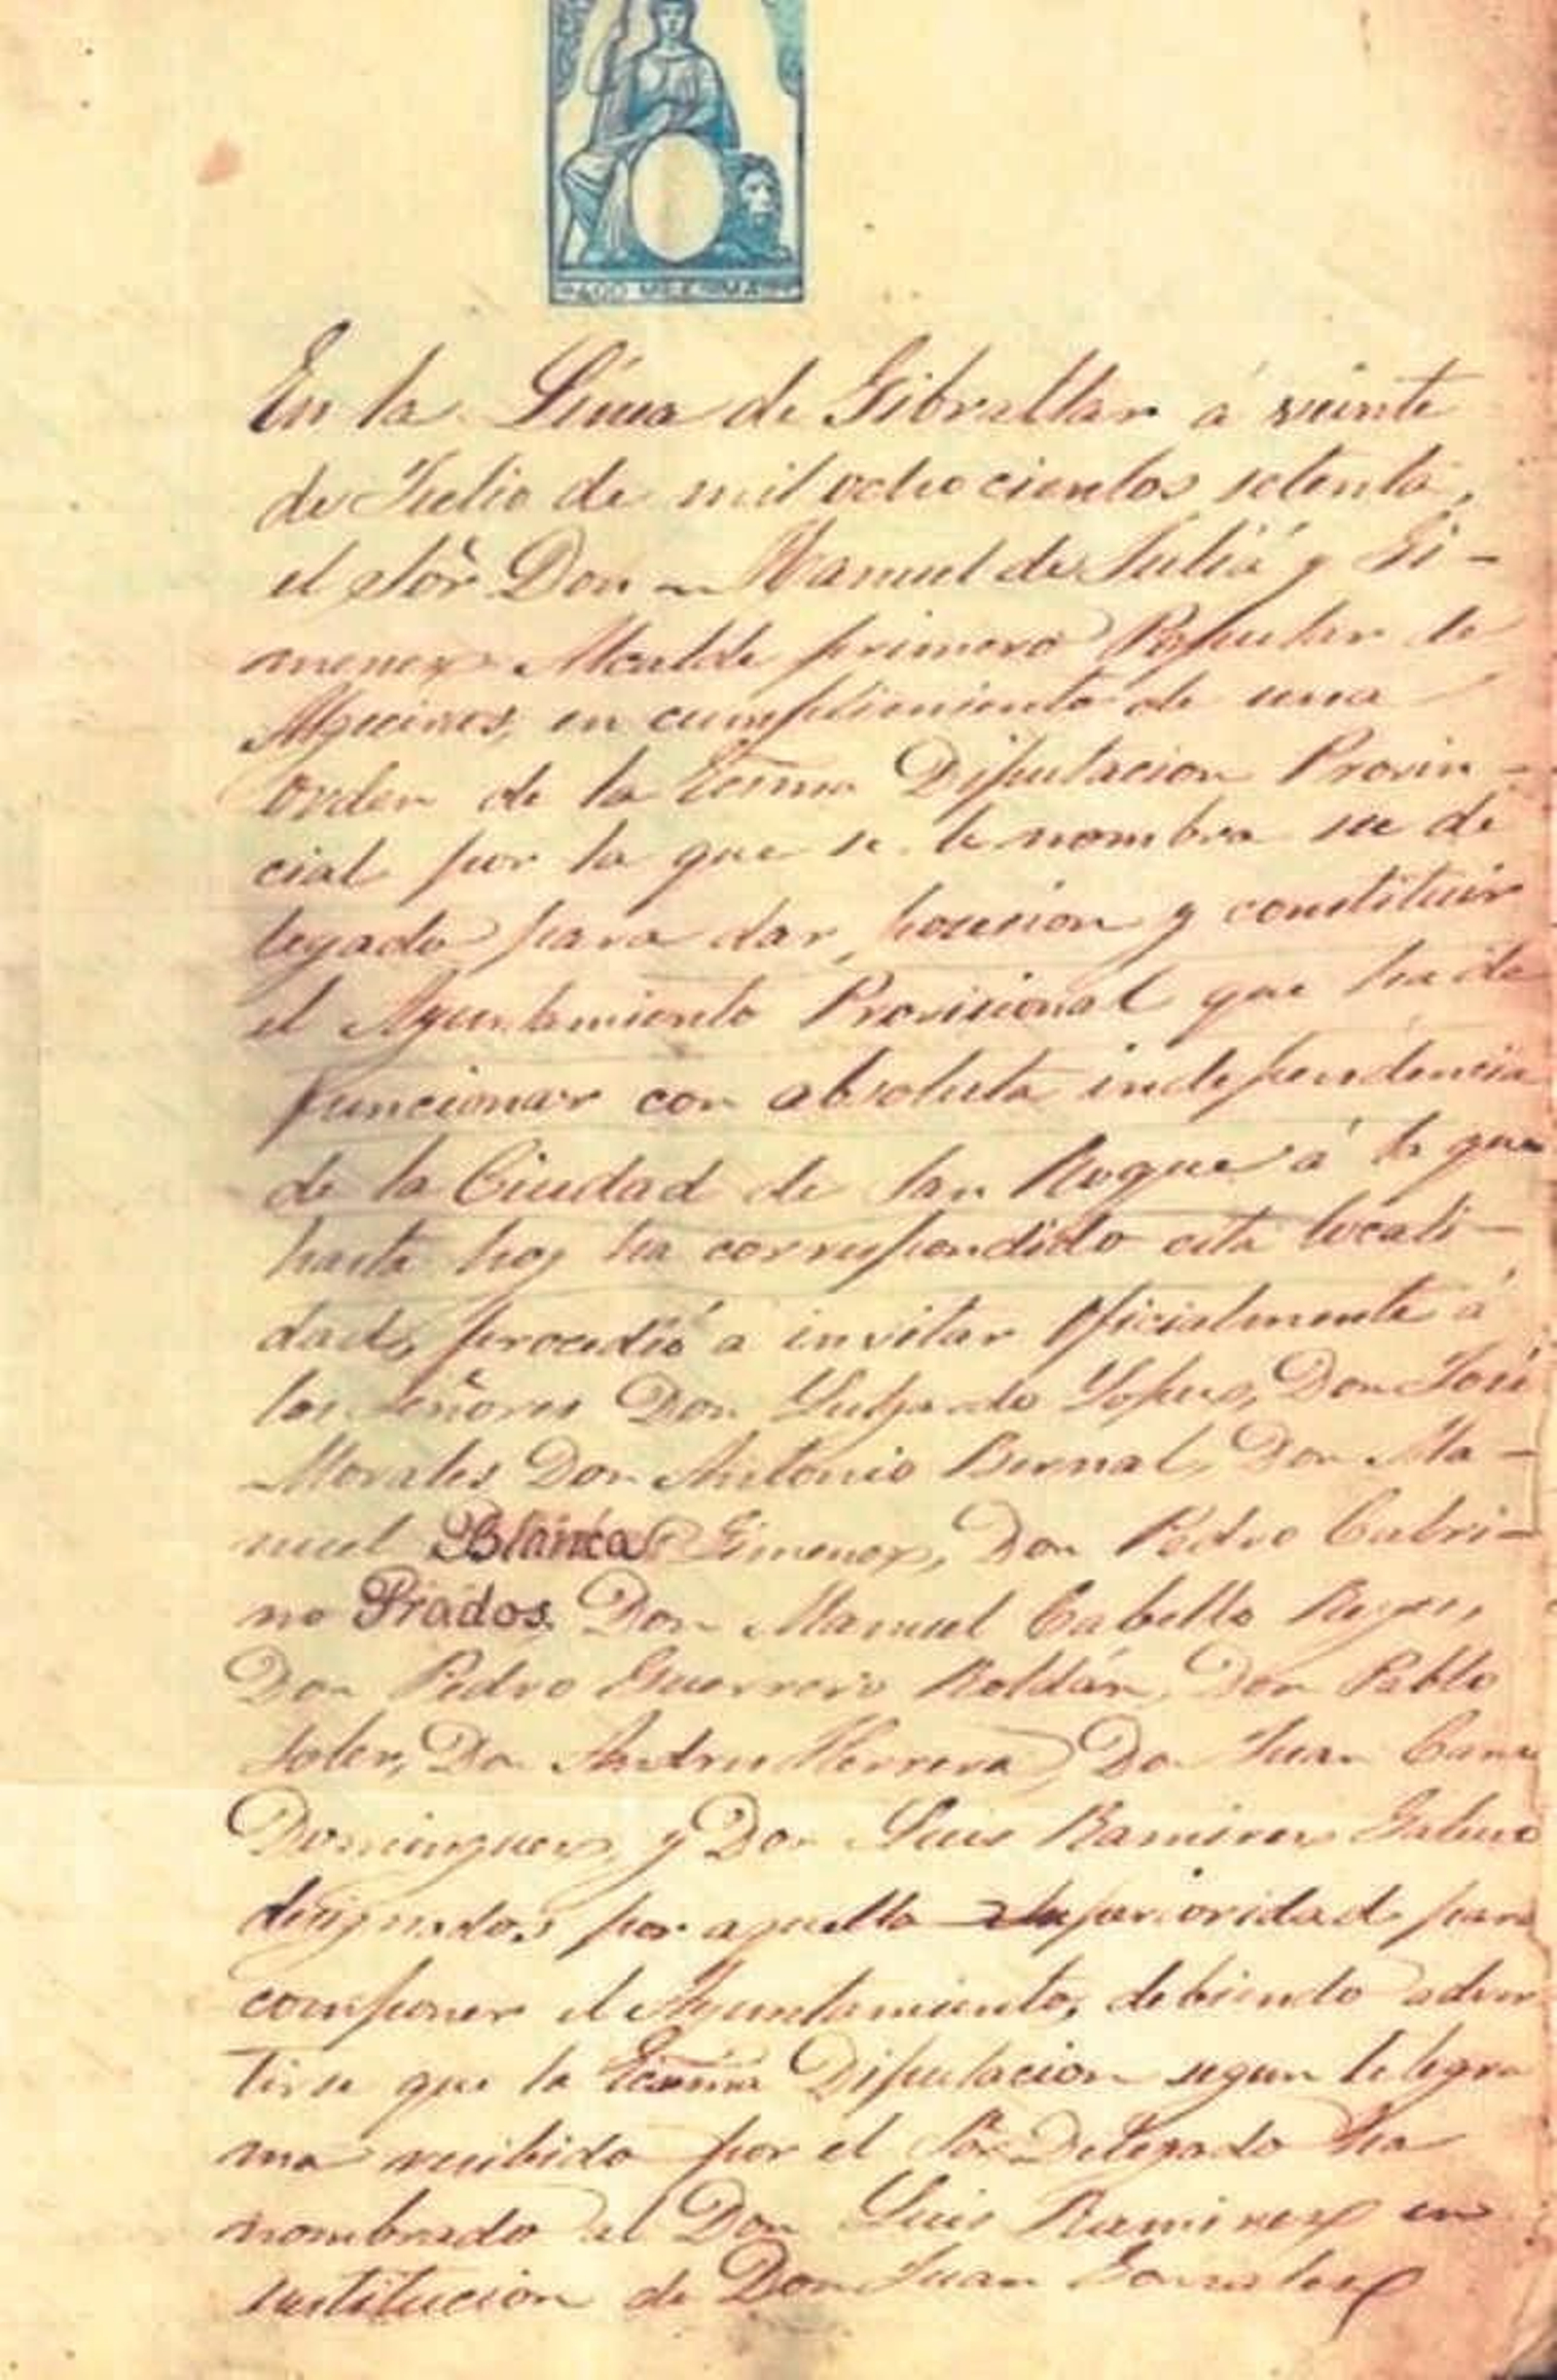 En la Línea de Gibraltar á veinte
de Julio de mil ochocientos setenta,
el Sōr Don Manuel de Juliá y Gi-
menez Alcalde primero Popular de
Algeciras, en cumplimiento de una
orden de la Excma Diputacion Provin-
cial por la que se le nombra su de
legado para dar posesion y constituir
el Ayuntamiento Provisional que ha de
funcionar con absoluta independencia
de la Ciudad de San Roque á la que
hasta hoy ha correspondido esta locali-
dad, procedió a invitar oficialmente á
los señores Don Lutgardo Lopez, Don José
Morales Don Antonio Bernal, Don Ma-
nuel Blanca Gimenez, Don Pedro Cabri-
no Prados Don Manuel Cabello Reyes,
Don Pedro Guerrero Roldán, Don Pablo
Soler, Don Andres Herrera, Don Juan
Dominguez, y Don Luis Ramirez Galuzo
designados por aquella Superioridad para
componer el Ayuntamiento, debiendo adver
tirse que la Excma Diputacion segun telegra
ma recibido por el Sōr Delegado ha
nombrado al Don Luis Ramirez en
sustitucion de Don Juan Gonzalez